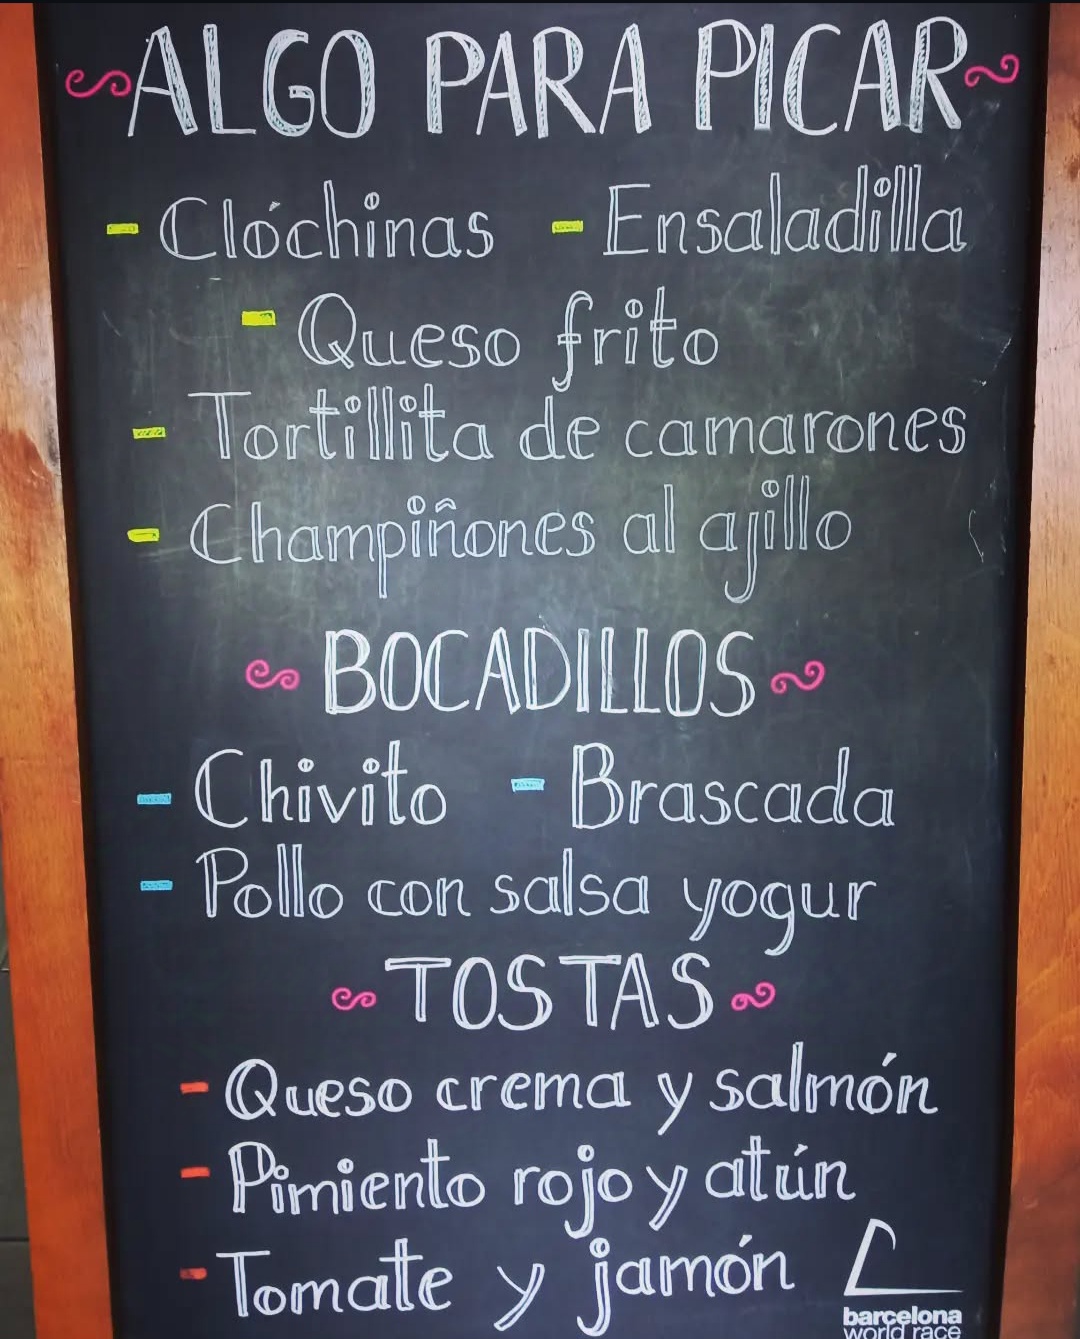 ALGO PARA PICAR
- Clóchinas - Ensaladilla
- Queso frito
- Tortillita de camarones
- Champiñones al ajillo
BOCADILLOS
- Chivito - Brascada
- Pollo con salsa yogur
TOSTAS
- Queso crema y salmón
- Pimiento rojo y atún
- Tomate y jamón
barcelona
world race